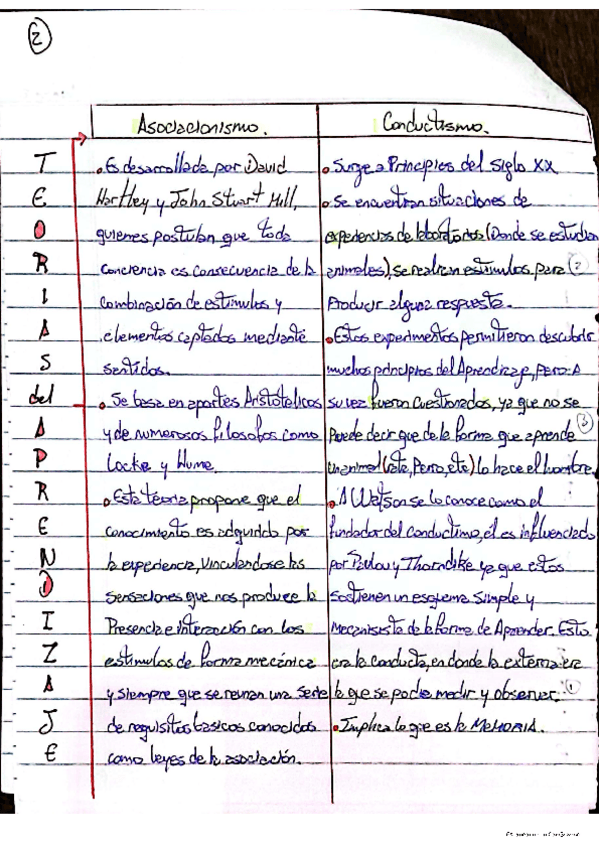 2
Asociacionismo.
Conductismo.
TEORIAS del APRENDIZAJE
• Es desarrollada por David
Hartley y John Stuart Mill,
quienes postulan que toda
conciencia es consecuencia de la
combinación de estimulos y
elementos captados mediante
sentidos.
• Se basa en aportes Aristotelicos
y de numerosos filosofos como
Locke y Hume.
• Esta téoria propone que el
conocimiento es adquirido por
la experiencia, vinculandose las
sensaciones que nos produce la
Presencia e interacción con los
estimulos de forma mecánica
y siempre que se reunan una serie
de requisitos basicos conocidos
como leyes de la asociación.
• Surge a Principios del Siglo XX
• Se encuentran situaciones de
experiencias de laboratorios (Donde se estudian
animales), se realizan estimulos para 2
Producir alguna respuesta.
• Estos experimentos permitieron descubrir
muchos principios del Aprendizaje, Pero: A
su vez fueron cuestionados, ya que no se
Puede decir que de la forma que aprende 3
un animal (rata, Perro, etc) lo hace el hombre.
• A Watson se lo conoce como el
fundador del conductimo, el es influenciado
por Pavlov y Thorndike ya que estos
Sostienen un esquema Simple y
Mecanisista de la forma de Aprender. Esta
era la conducta, en donde la externa era
la que se podia medir y observar. 1
• Implica lo que es la MEMORIA.